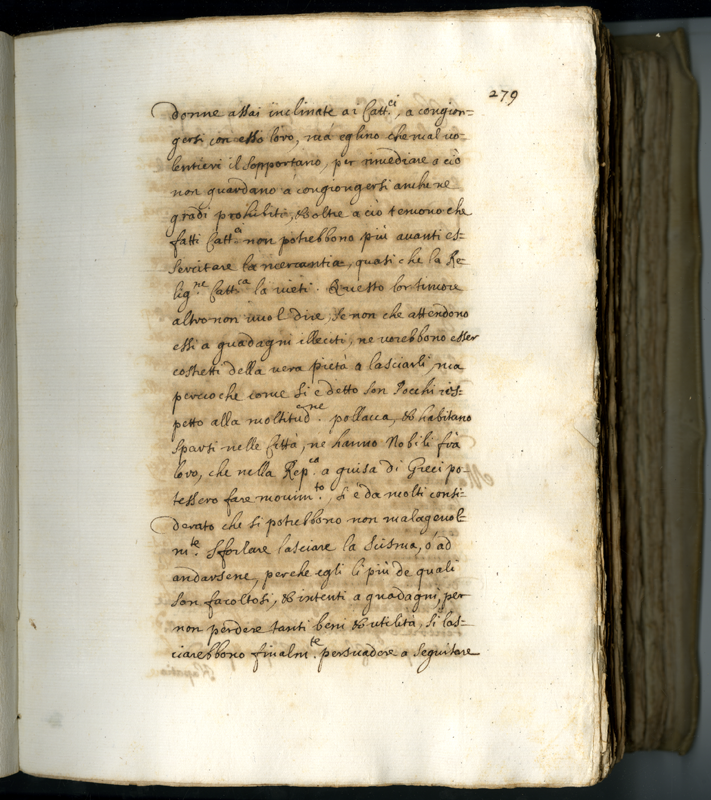 279
donne assai inclinate ai Catt.ci, a congion-
gersi con esso loro, mà eglino che mal vo-
lentieri il sopportano, per rimediare a ciò
non guardano à congiongersi anche ne
gradi prohibiti, & oltre a ciò temono che
fatti Catt.ci non potrebbono più auanti es-
sercitare la mercantia, quasi che la Re-
lig.ne Catt.ca la uieti. Questo lor timore
altro non uuol dire, se non che attendono
essi a guadagni illeciti, ne uorebbono esser
costretti della uera pietà a lasciarli, ma
percioche come si è detto son Pocchi ris-
petto alla moltitud.ne pollacca, & habitano
sparsi nelle Città, ne hanno Nobili frà
loro, che nella Rep.ca a guisa di Greci po-
tessero fare mouim.to, si è da molti consi-
derato che si potrebbono non malageuol-
m.te sforzare lasciare la Scisma, ò ad
andarsene, perche egli li più de quali
son facoltosi, & intenti a guadagni, per
non perdere tanti beni & utilità, si las-
ciarebbono finalm.te persuadere a seguitare